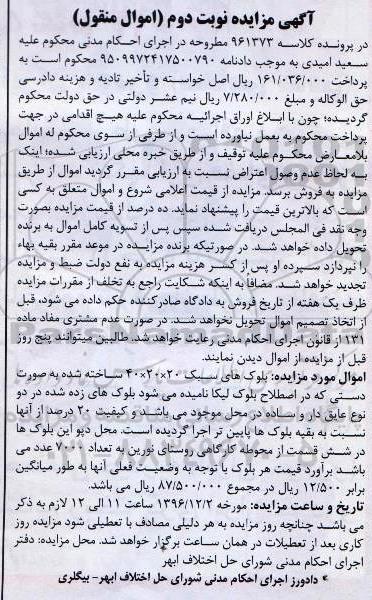 آگهی مزایده نوبت دوم (اموال منقول)
در پرونده کلاسه ۹۶۱۳۷۳ مطروحه در اجرای احکام مدنی محکوم علیه
سعید امیدی به موجب دادنامه ۹۵۰۹۹۷۲۴۱۷۵۰۰۷۹۰ محکوم است به
پرداخت ۱۶۱/۰۳۶/۰۰۰ ریال اصل خواسته و تأخیر تادیه و هزینه دادرسی
حق الوکاله و مبلغ ۷/۲۸۰/۰۰۰ ریال نیم عشر دولتی در حق دولت محکوم
گردیده؛ چون با ابلاغ اوراق اجرائیه محکوم علیه هیچ اقدامی در جهت
پرداخت محکوم به بعمل نیاورده است و از طرفی از سوی محکوم له اموال
بلامعارض محکوم علیه توقیف و از طریق خبره محلی ارزیابی شده؛ اینک
به لحاظ عدم وصول اعتراض نسبت به ارزیابی مقرر گردید اموال از طریق
مزایده به فروش برسد. مزایده از قیمت اعلامی شروع و اموال متعلق به کسی
است که بالاترین قیمت را پیشنهاد نماید. ده درصد از قیمت مزایده بصورت
وجه نقد فی المجلس دریافت شده سپس پس از تسویه کامل اموال به برنده
تحویل داده خواهد شد. در صورتیکه برنده مزایده در موعد مقرر بقیه بهاء
را نپردازد سپرده او پس از کسر هزینه مزایده به نفع دولت ضبط و مزایده
تجدید خواهد شد. مضافاً به اینکه شکایت راجع به تخلف از مقررات مزایده
ظرف یک هفته از تاریخ فروش به دادگاه صادرکننده حکم داده می شود، قبل
از اتخاذ تصمیم اموال تحویل نخواهد شد. در صورت عدم مشتری مفاد ماده
۱۳۱ از قانون اجرای احکام مدنی رعایت خواهد شد. طالبین میتوانند پنج روز
قبل از مزایده از اموال دیدن نمایند.
اموال مورد مزایده: بلوک های سبک ۲۰×۲۰×۴۰ ساخته شده به صورت
دستی که در اصطلاح بلوک لیکا نامیده می شود بلوک های زده شده در دو
نوع عایق دار و ساده در محل موجود می باشد و کیفیت ۲۰ درصد از آنها
نسبت به بقیه بلوک ها پایین تر اجرا گردیده است. محل دپو این بلوک ها
در شش قسمت از محوطه کارگاهی روستای نورین به تعداد ۷۰۰۰ عدد می
باشد برآورد قیمت هر بلوک با توجه به وضعیت فعلی آنها به طور میانگین
برابر ۱۲/۵۰۰ ریال در مجموع ۸۷/۵۰۰/۰۰۰ ریال می باشد.
تاریخ و ساعت مزایده: مورخه ۱۳۹۶/۱۲/۲ ساعت ۱۱ الی ۱۲ لازم به ذکر
می باشد چنانچه روز مزایده به هر دلیلی مصادف با تعطیلی شود مزایده روز
کاری بعد از تعطیلات در همان ساعت برگزار خواهد شد. محل مزایده: دفتر
اجرای احکام مدنی شورای حل اختلاف ابهر
* دادورز اجرای احکام مدنی شورای حل اختلاف ابهر- بیگلری